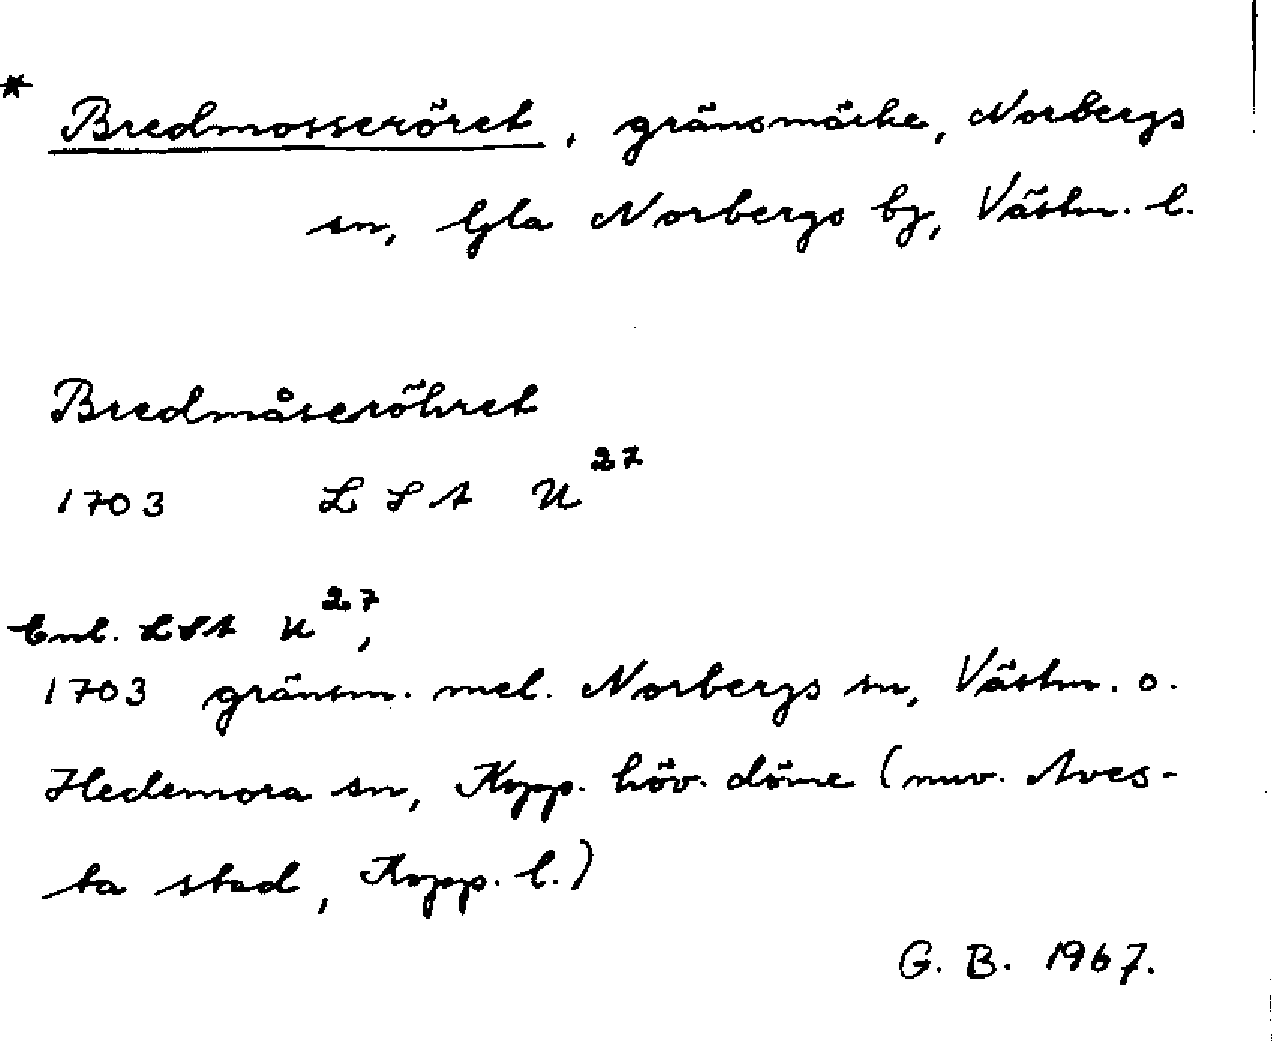 * Bredmosseröret, gränsmärke, Norbergs
sn, Gla Norbergs by, Västm. l.
Bredmåseröhret
1703 LSA U²⁷
Enl. LSA U²⁷,
1703 gränsm. mel. Norbergs sn, Västm. o.
Hedemora sn, Kopp. höv. döme (nuv. Aves-
ta stad, Kopp. l.)
G. B. 1967.